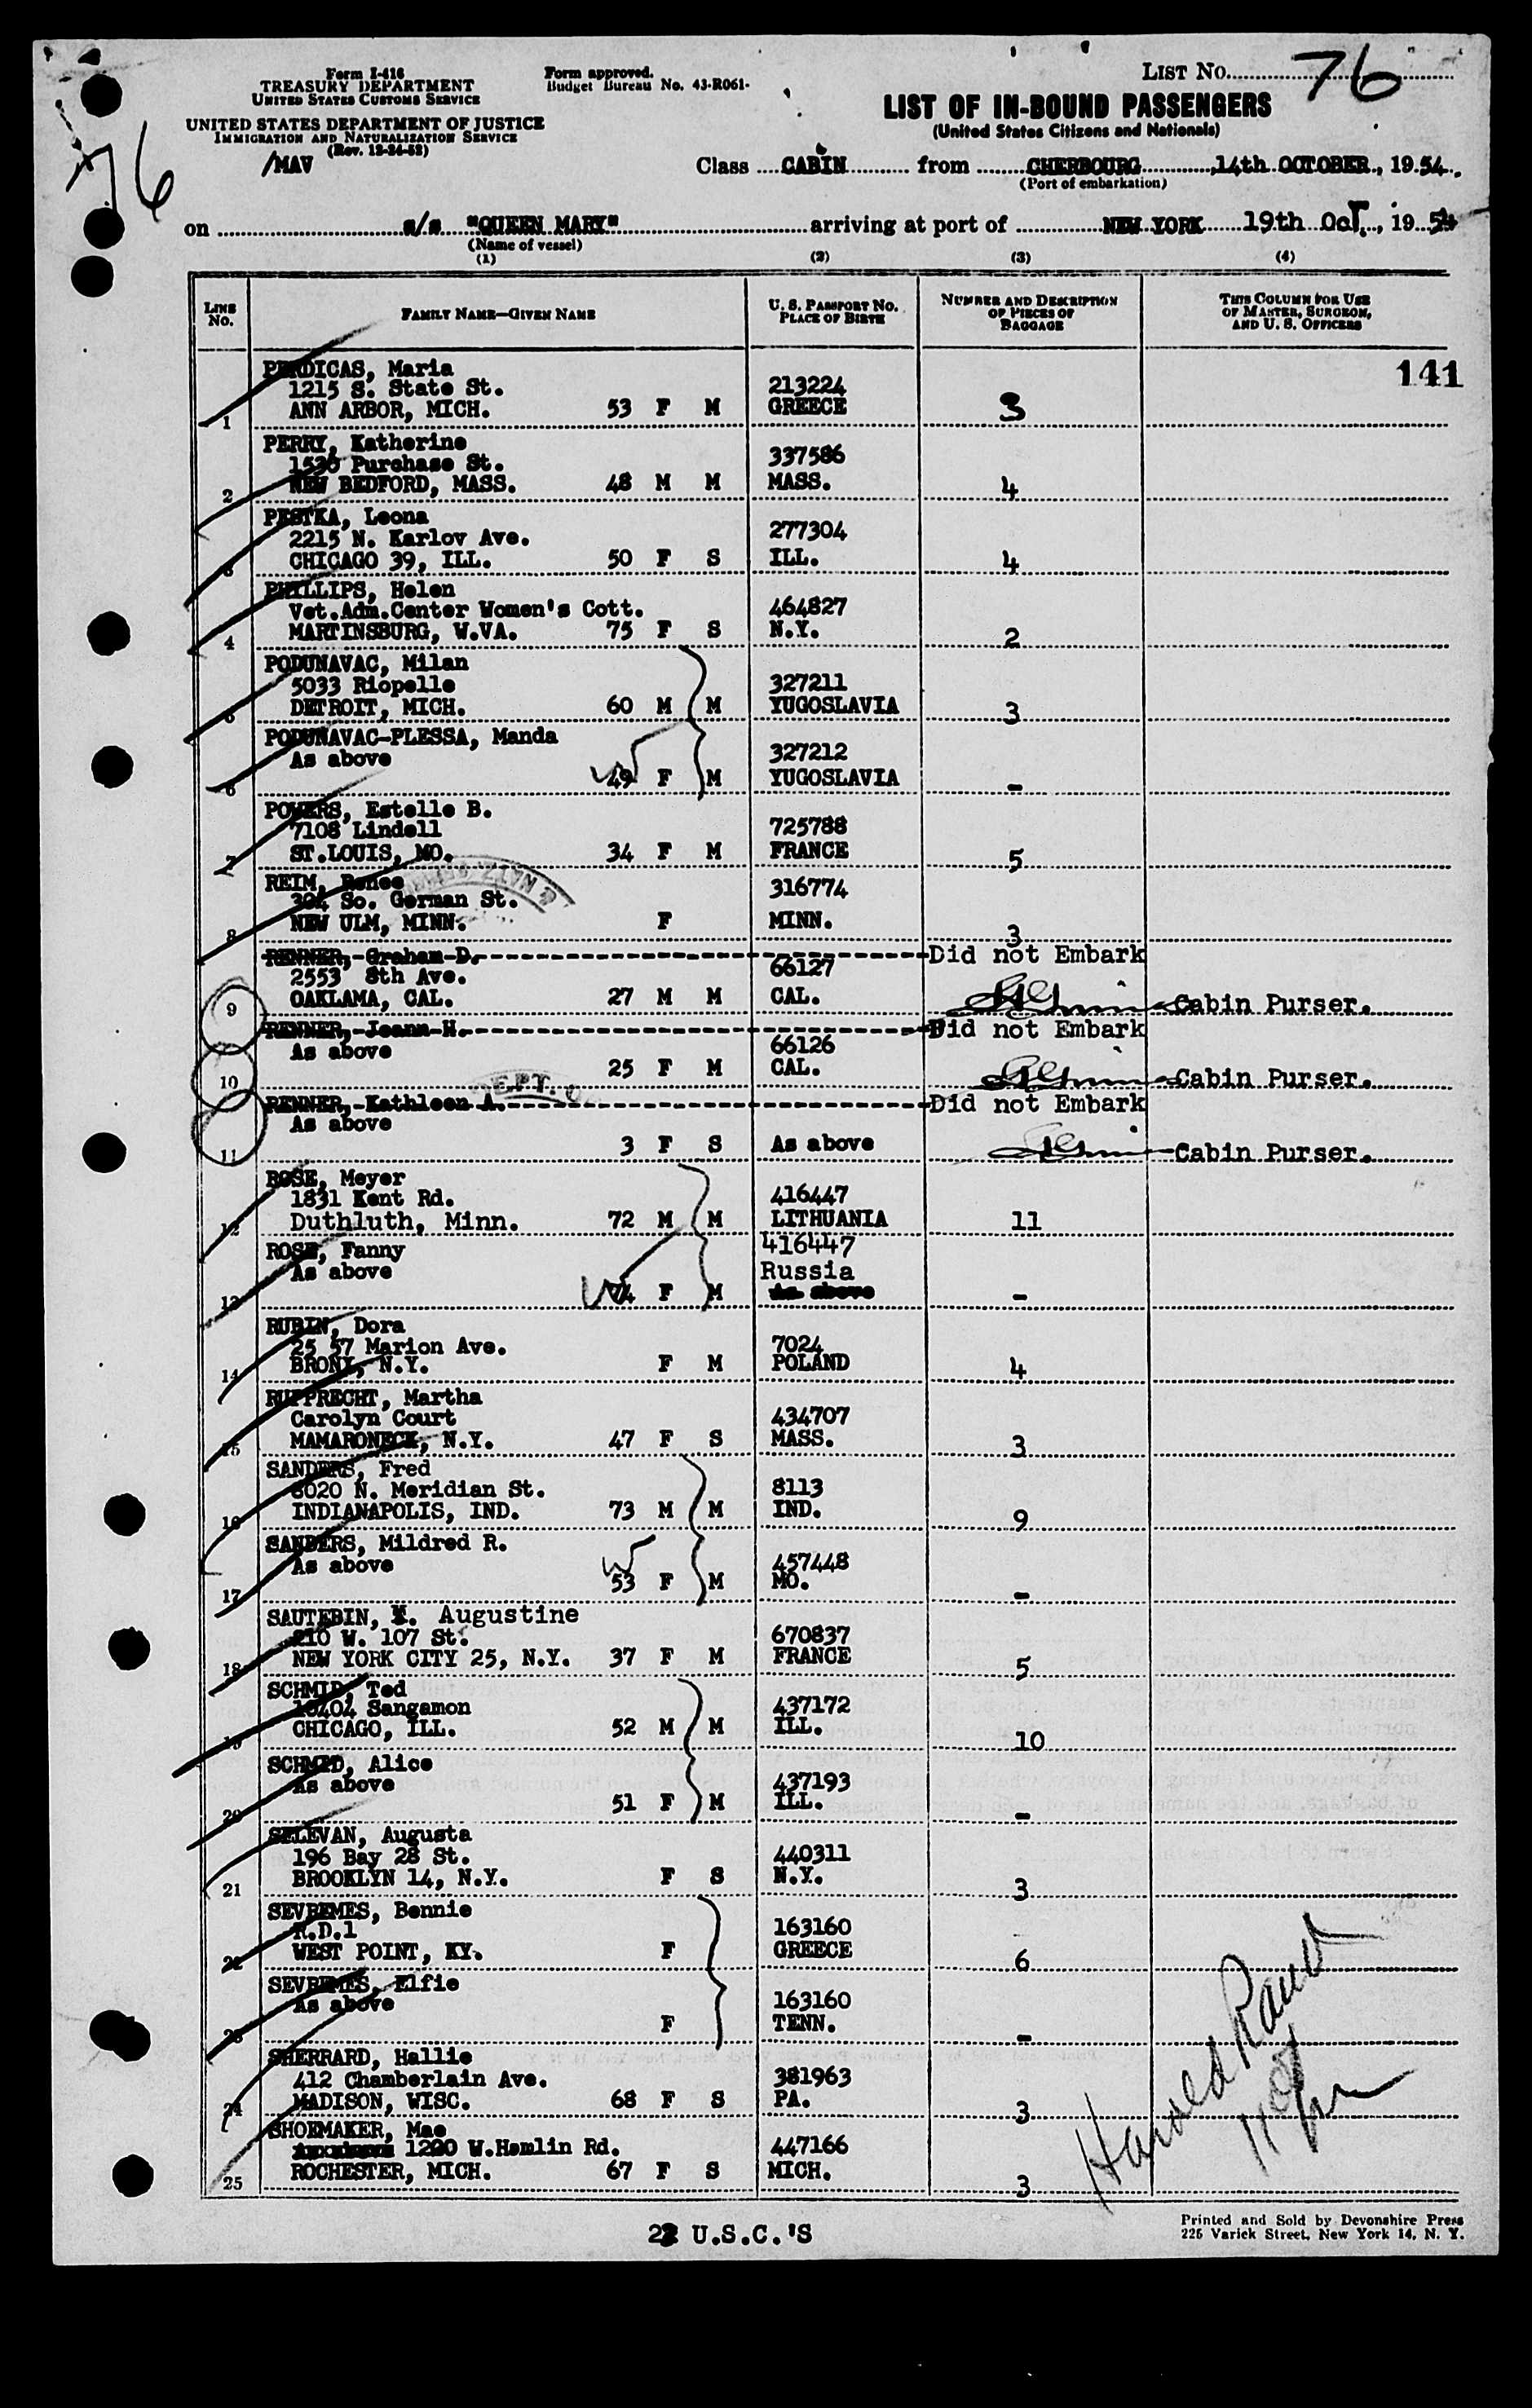 Form I-416
TREASURY DEPARTMENT
UNITED STATES CUSTOMS SERVICE
UNITED STATES DEPARTMENT OF JUSTICE
IMMIGRATION AND NATURALIZATION SERVICE
(Rev. 12-24-52)
/MAV
Form approved.
Budget Bureau No. 43-R061-
LIST No. 76
76
LIST OF IN-BOUND PASSENGERS
(United States Citizens and Nationals)
Class CABIN from CHERBOURG, 14th OCTOBER, 1954.
(Port of embarkation)
on s/s "QUEEN MARY" arriving at port of NEW YORK 19th Oct., 1954
(Name of vessel)
(1) (2) (3) (4)
LINE No. FAMILY NAME—GIVEN NAME U. S. PASSPORT No. PLACE OF BIRTH NUMBER AND DESCRIPTION OF PIECES OF BAGGAGE THIS COLUMN FOR USE OF MASTER, SURGEON, AND U. S. OFFICERS
141
PERDICAS, Maria
1215 S. State St. 213224
1 ANN ARBOR, MICH. 53 F M GREECE 3
PERRY, Katherine
1530 Purchase St. 337586
2 NEW BEDFORD, MASS. 48 M M MASS. 4
PESTKA, Leona
2215 N. Karlov Ave. 277304
3 CHICAGO 39, ILL. 50 F S ILL. 4
PHILLIPS, Helen
Vet.Adm.Center Women's Cott. 464827
4 MARTINSBURG, W.VA. 75 F S N.Y. 2
PODUNAVAC, Milan
5033 Riopelle 327211
5 DETROIT, MICH. 60 M M YUGOSLAVIA 3
PODUNAVAC-PLESSA, Manda
As above 327212
6 49 F M YUGOSLAVIA -
POWERS, Estelle B.
7108 Lindell 725788
7 ST.LOUIS, MO. 34 F M FRANCE 5
REIM, Renee 316774
304 So. German St.
8 NEW ULM, MINN. F MINN. 3
RENNER, Graham D. Did not Embark
2553 8th Ave. 66127
9 OAKLAMA, CAL. 27 M M CAL. Cabin Purser.
RENNER, Jeann H. Did not Embark
As above 66126
10 25 F M CAL. Cabin Purser.
DEPT. O
RENNER, Kathleen A. Did not Embark
As above
11 3 F S As above Cabin Purser.
ROSE, Meyer
1831 Kent Rd. 416447
12 Duthluth, Minn. 72 M M LITHUANIA 11
ROSE, Fanny 416447
As above Russia
13 74 F M As above -
RUBIN, Dora
25 57 Marion Ave. 7024
14 BRONX, N.Y. F M POLAND 4
RUPPRECHT, Martha
Carolyn Court 434707
15 MAMARONECK, N.Y. 47 F S MASS. 3
SANDERS, Fred
8020 N. Meridian St. 8113
16 INDIANAPOLIS, IND. 73 M M IND. 9
SANDERS, Mildred R.
As above 457448
17 53 F M MO. -
SAUTEBIN, Augustine
210 W. 107 St. 670837
18 NEW YORK CITY 25, N.Y. 37 F M FRANCE 5
SCHMID, Ted
10404 Sangamon 437172
19 CHICAGO, ILL. 52 M M ILL. 10
SCHMID, Alice
As above 437193
20 51 F M ILL. -
SELEVAN, Augusta
196 Bay 28 St. 440311
21 BROOKLYN 14, N.Y. F S N.Y. 3
SEVREMES, Bennie
R.D.1 163160
22 WEST POINT, KY. F GREECE 6
SEVREMES, Elfie
As above 163160
23 F TENN. -
SHERRARD, Hallie
412 Chamberlain Ave. 381963
24 MADISON, WISC. 68 F S PA. 3
SHOEMAKER, Mae
1220 W.Hamlin Rd. 447166
25 ROCHESTER, MICH. 67 F S MICH. 3
Harold Rand
22 U.S.C.'S
Printed and Sold by Devonshire Press
225 Varick Street, New York 14, N. Y.